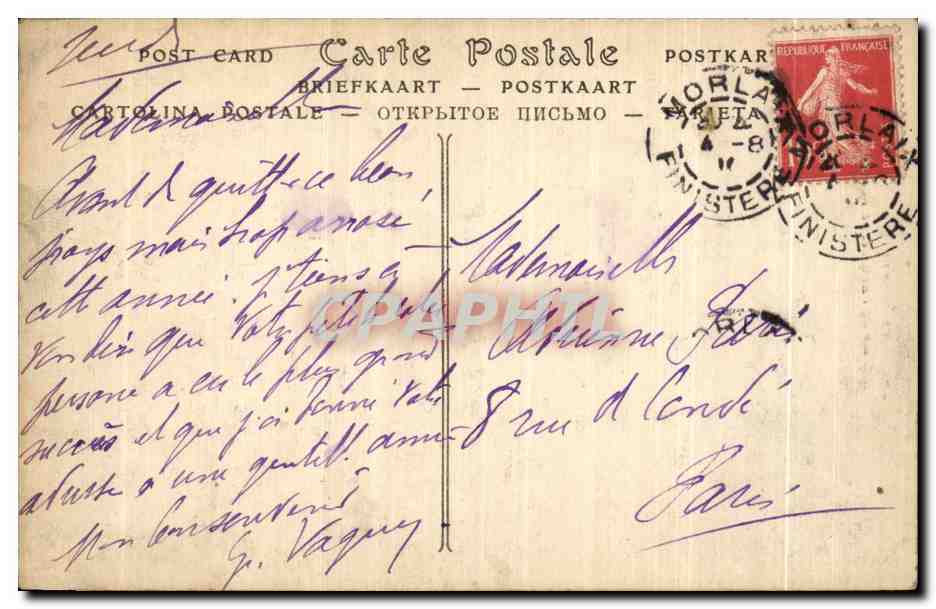 Jeudi
POST CARD Carte Postale POSTKAR
BRIEFKAART - POSTKAART
CARTOLINA POSTALE - ОТКРЫТОЕ ПИСЬМО - TARJETA
RÉPUBLIQUE FRANÇAISE
MORLAIX
4 -8
11
FINISTERE
MORLAIX
FINISTERE
Mademoiselle
Avant de quitter ce beau
pays mais trop arrosé
cette année. J'tiens à
dire que votre
personne a eu le plus grand
succès et que j'ai donné votre
adresse à une gentille amie
Mon bon souvenir
G.
Mademoiselle
8 rue de Condé
Paris
CPAPHIL